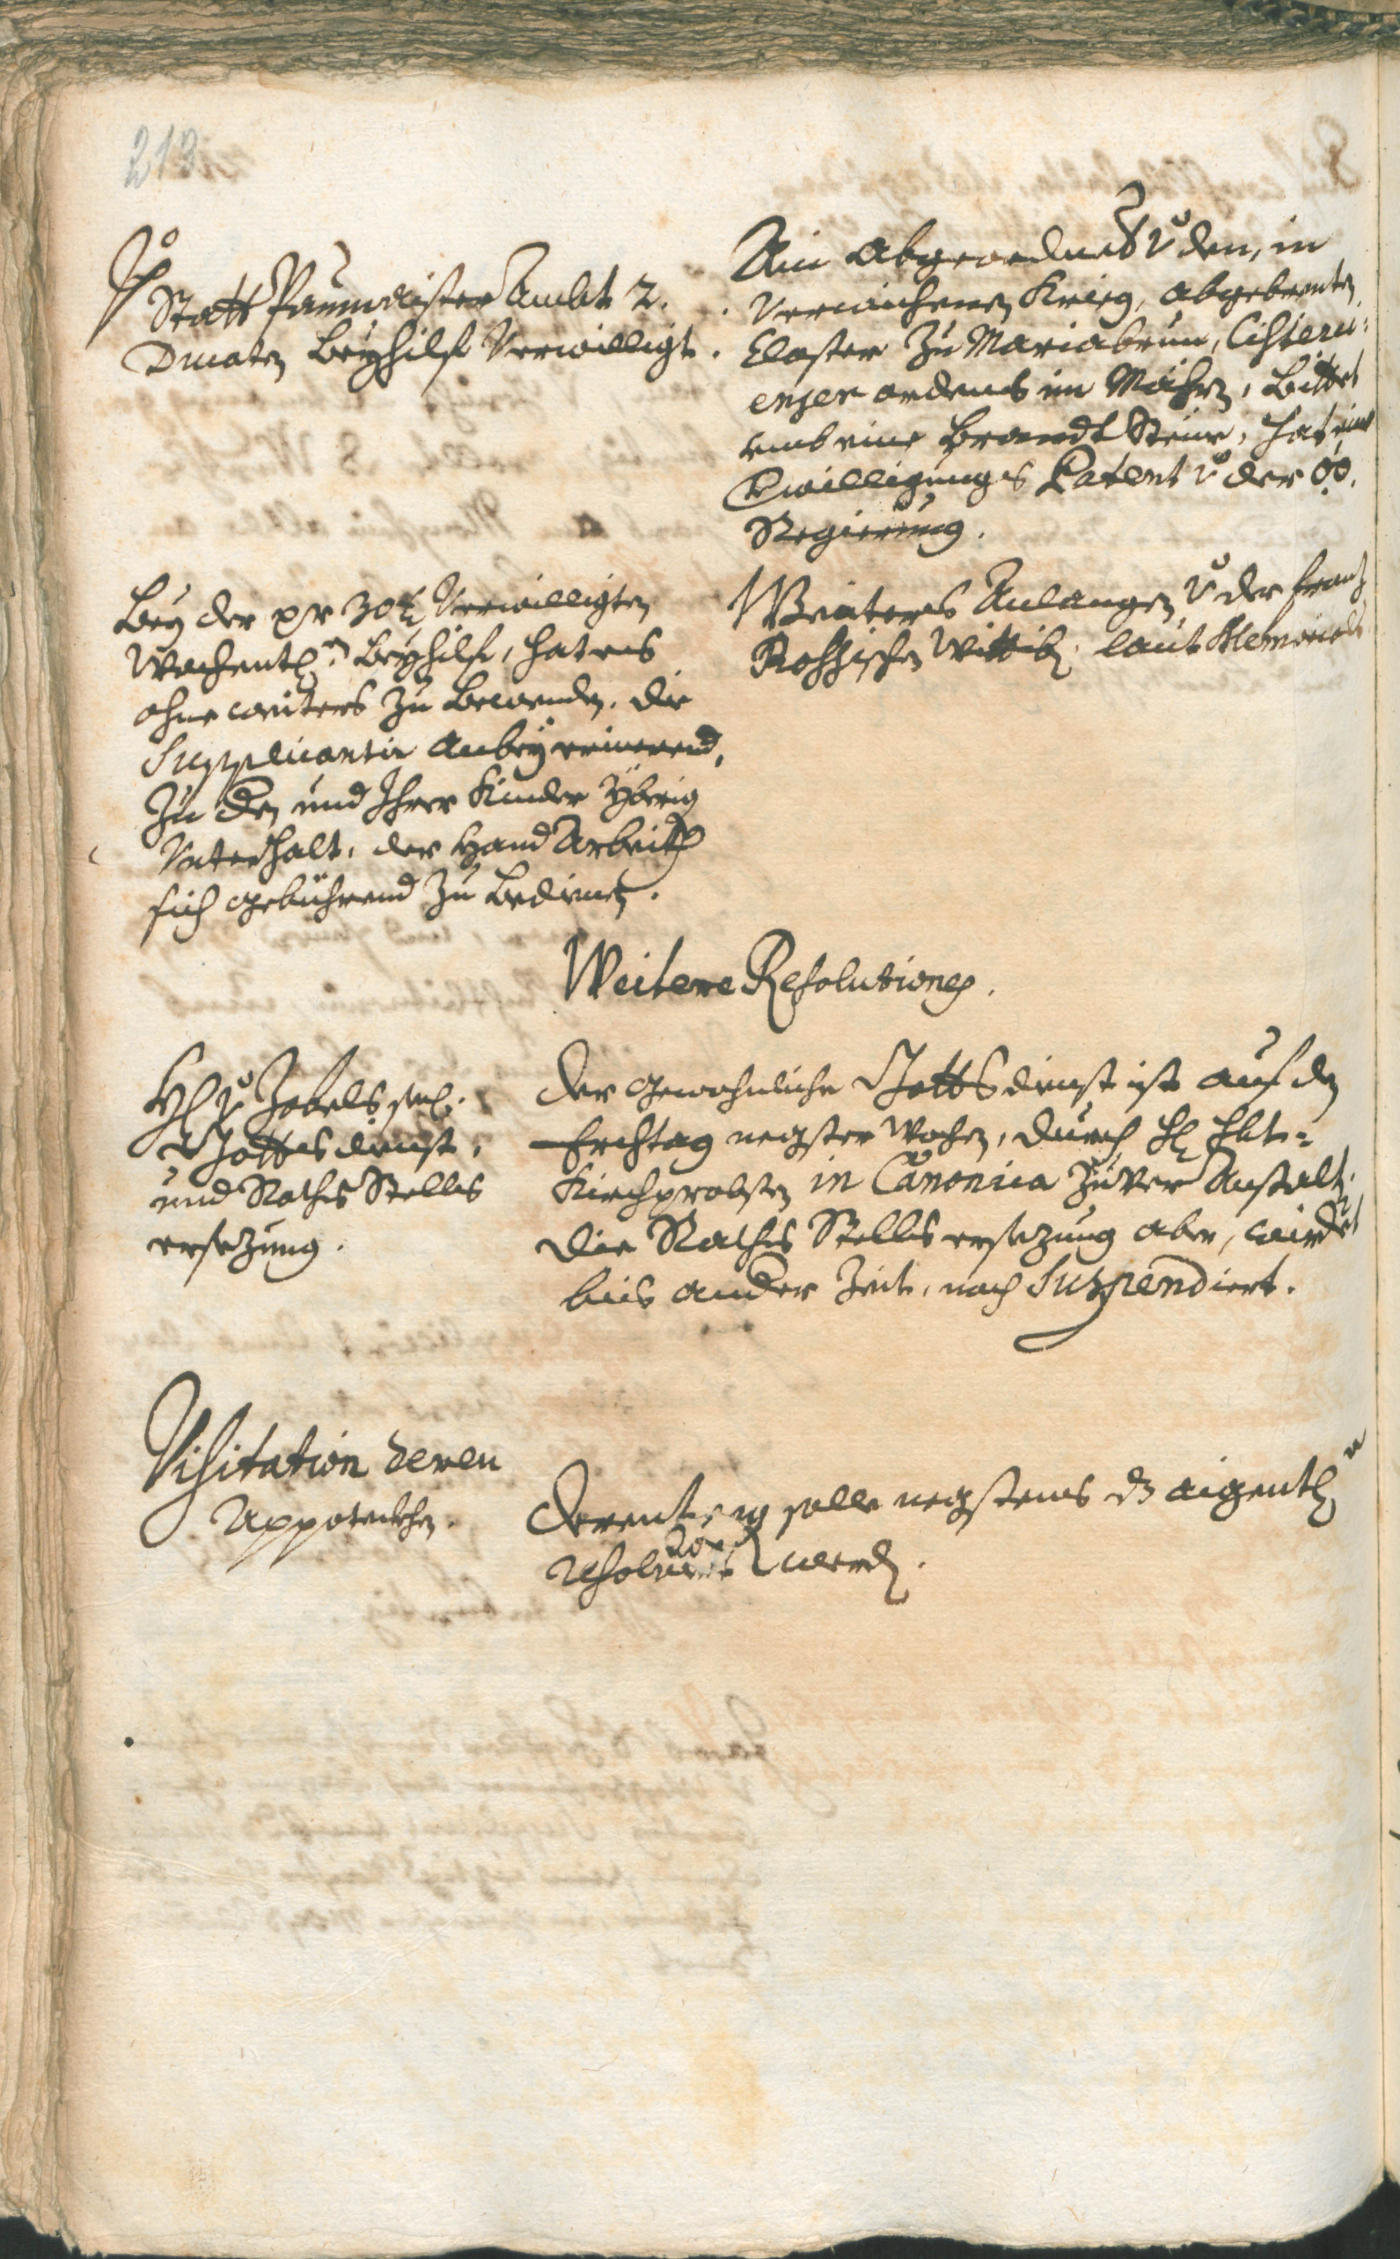 213
Pr
Statt Paumaister Ambt 2.
Ducaten Beyhilf Verwilligt.
Ain abgeordneter von den, in
Verwichenen Krieg, abgebrenten
Closter zu Mariabrun, Cisterci-
enser ordens in Mährn, bittet
umb eine Brandt Steur, hat
Bewilligungs Patent von der ÖÖ.
Regierung.
Bey der pr 30 x Verwilligten
Wochentlichen Beyhilf, hat es
ohne weiters zu bewenden, die
Supplicantin anbey erinerend,
zu den und Ihrer Kinder yberig
Unterhalt, der Hand Arbeith
sich gebührend zu bedienen.
Weiters Anlangen von der Franz
Rossischen Wittib, laut Memorials
Weitere Resolutiones.
H. v. Zobels sel.
Gottsdienst,
und Raths Stells
ersezung.
der gewohnliche Gottsdienst ist auf den
Erchtag negster Wochen, durch H.
Kirchprobsten in Canonica zu veranstalten.
die Raths Stells ersezung aber, wirdet
bis ander Zeit, noch suspendiert.
Visitation deren
Appotecken.
derentwegen solle negstens das aigentliche
resolviert werden.